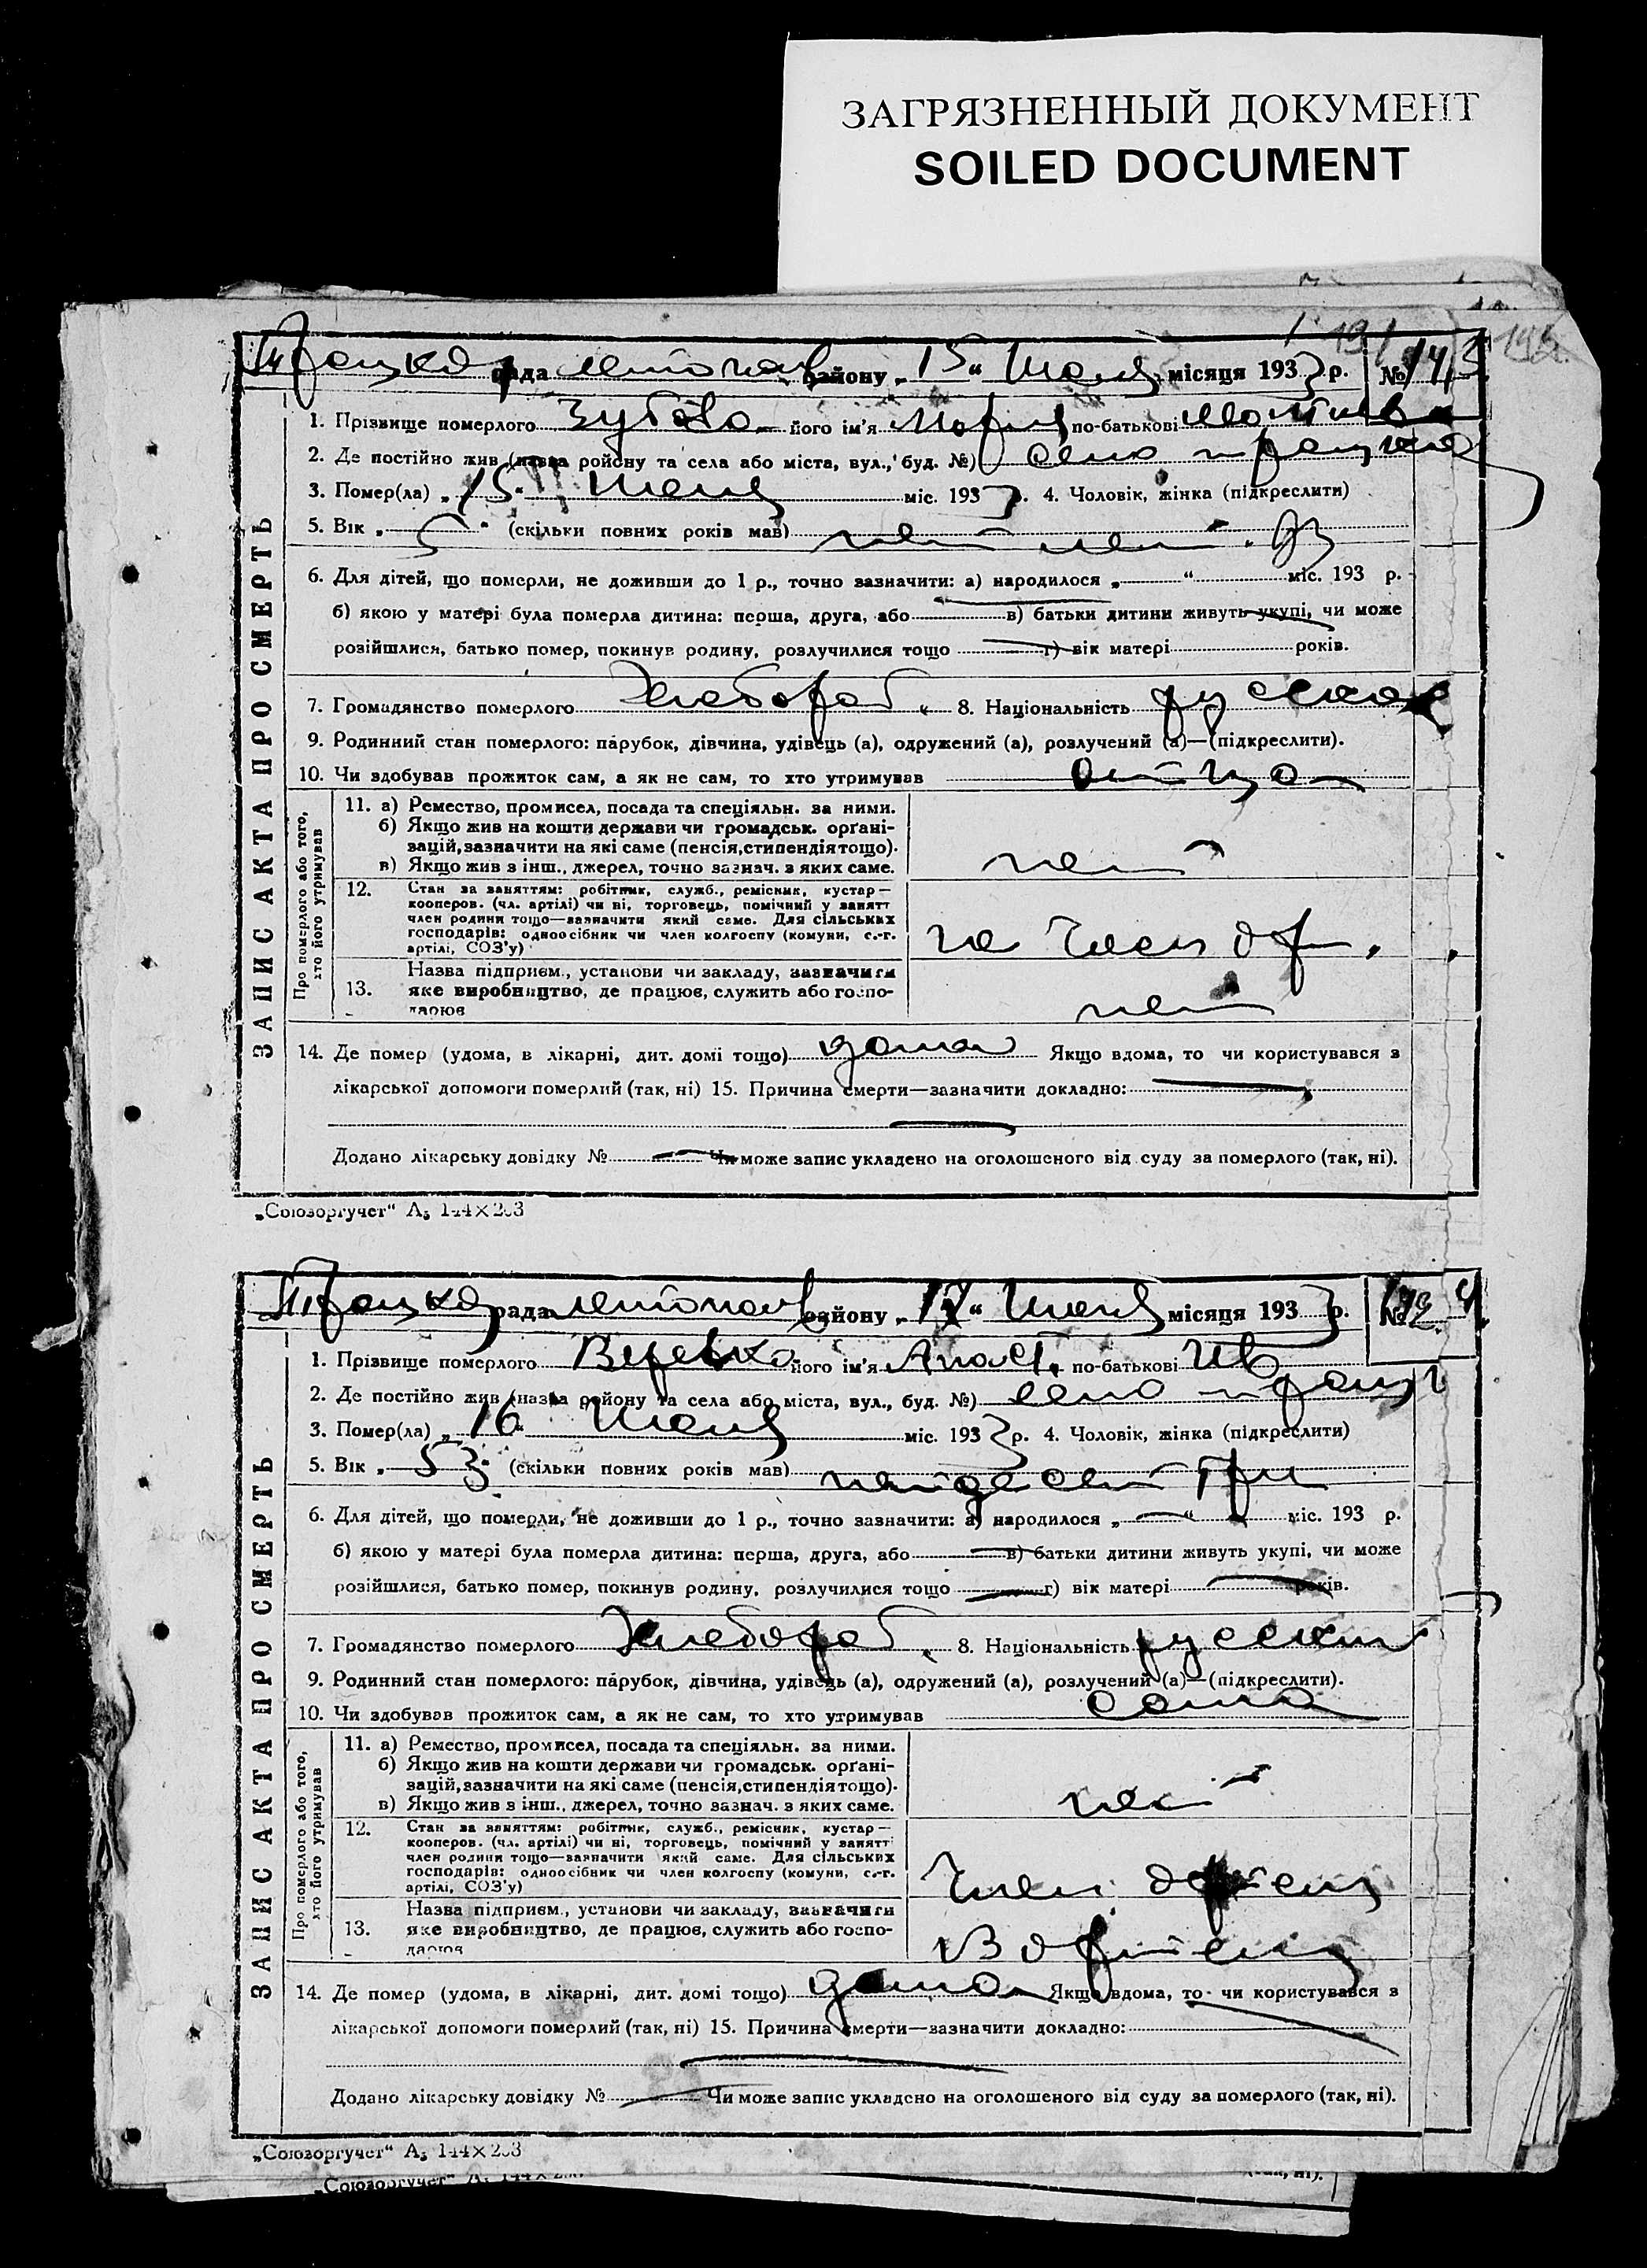 ЗАГРЯЗНЕННЫЙ ДОКУМЕНТ
SOILED DOCUMENT
рада району „15“ Июля місяця 1933 р. №
ЗАПИС АКТА ПРО СМЕРТЬ
1. Прізвище померлого Зубова його ім'я Мария по-батькові
2. Де постійно жив (назва району та села або міста, вул., буд. №) село
3. Помер(ла) „15“ Июля міс. 1933 р. 4. Чоловік, жінка (підкреслити)
5. Вік „5“ (скільки повних років мав) лет.
6. Для дітей, що померли, не доживши до 1 р., точно зазначити: а) народилося „ “ міс. 193 р.
б) якою у матері була померла дитина: перша, друга, або в) батьки дитини живуть укупі, чи може
розійшлися, батько помер, покинув родину, розлучилися тощо г) вік матері років.
7. Громадянство померлого Хлебороб 8. Національність русская
9. Родинний стан померлого: парубок, дівчина, удівець (а), одружений (а), розлучений (а)—(підкреслити).
10. Чи здобував прожиток сам, а як не сам, то хто утримував отцом
Про померлого або того, хто його утримував
11. а) Ремество, промисел, посада та спеціяльн. за ними.
б) Якщо жив на кошти держави чи громадськ. органі-
зацій, зазначити на які саме (пенсія, стипендія тощо).
в) Якщо жив з інш., джерел, точно зазнач. з яких саме.
нет
12. Стан за заняттям: робітник, служб., ремісник, кустар—
кооперов. (чл. артілі) чи ні, торговець, помічний у занятт
член родини тощо—зазначити який саме. Для сільських
господарів: одноосібник чи член колгоспу (комуни, с.-г.
артілі, СОЗ'у)
13. Назва підприєм., установи чи закладу, зазначити
яке виробництво, де працює, служить або госпо-
дарює
нет
14. Де помер (удома, в лікарні, дит. домі тощо) дома Якщо вдома, то чи користувався з
лікарської допомоги померлий (так, ні) 15. Причина смерти—зазначити докладно:
Додано лікарську довідку № Чи може запис укладено на оголошеного від суду за померлого (так, ні).
„Союзоргучет“ А₅ 144×203
рада району „ “ Июля місяця 1933 р. №
ЗАПИС АКТА ПРО СМЕРТЬ
1. Прізвище померлого його ім'я по-батькові Ив
2. Де постійно жив (назва району та села або міста, вул., буд. №) село
3. Помер(ла) „16“ Июля міс. 1933 р. 4. Чоловік, жінка (підкреслити)
5. Вік „53“ (скільки повних років мав) пятдесят три
6. Для дітей, що померли, не доживши до 1 р., точно зазначити: а) народилося „ “ міс. 193 р.
б) якою у матері була померла дитина: перша, друга, або в) батьки дитини живуть укупі, чи може
розійшлися, батько помер, покинув родину, розлучилися тощо г) вік матері років.
7. Громадянство померлого Хлебороб 8. Національність русский
9. Родинний стан померлого: парубок, дівчина, удівець (а), одружений (а), розлучений (а)—(підкреслити).
10. Чи здобував прожиток сам, а як не сам, то хто утримував сама
Про померлого або того, хто його утримував
11. а) Ремество, промисел, посада та спеціяльн. за ними.
б) Якщо жив на кошти держави чи громадськ. органі-
зацій, зазначити на які саме (пенсія, стипендія тощо).
в) Якщо жив з інш., джерел, точно зазнач. з яких саме.
нет
12. Стан за заняттям: робітник, служб., ремісник, кустар—
кооперов. (чл. артілі) чи ні, торговець, помічний у занятт
член родини тощо—зазначити який саме. Для сільських
господарів: одноосібник чи член колгоспу (комуни, с.-г.
артілі, СОЗ'у)
Член
13. Назва підприєм., установи чи закладу, зазначити
яке виробництво, де працює, служить або госпо-
дарює
В артели
14. Де помер (удома, в лікарні, дит. домі тощо) дома Якщо вдома, то чи користувався з
лікарської допомоги померлий (так, ні) 15. Причина смерти—зазначити докладно:
Додано лікарську довідку № Чи може запис укладено на оголошеного від суду за померлого (так, ні).
„Союзоргучет“ А₅ 144×203
„Союзоргучет“